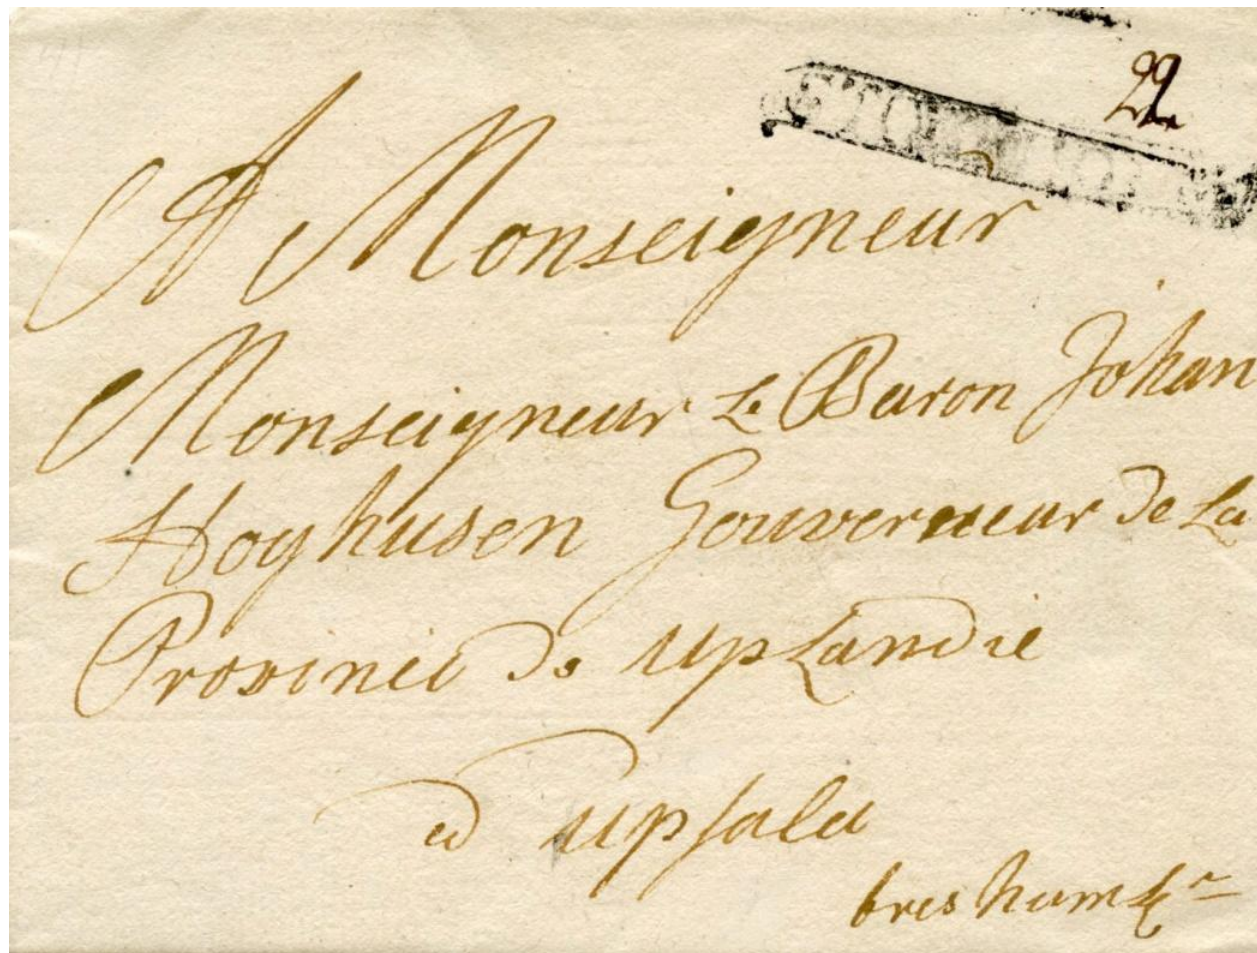 22
A Monseigneur
Monseigneur Le Baron Johan
Hoghusen Gouverneur de La
Province de UpLandie
a Upsala
tres humble